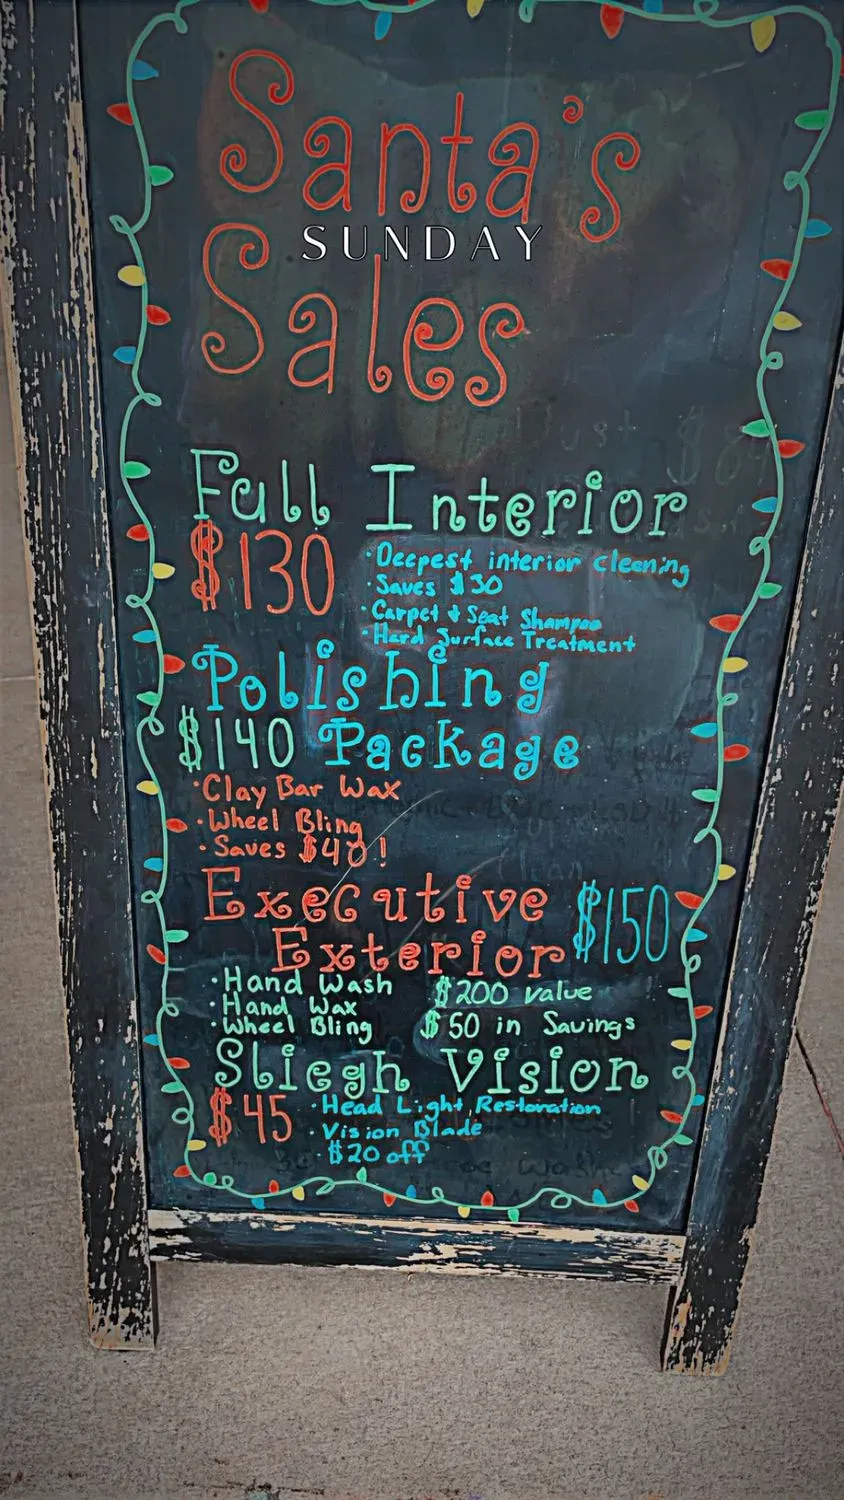 Santa's
SUNDAY
Sales
Full Interior
$130
· Deepest interior cleening
· Saves $30
· Carpet & Seat Shampoo
· Hard Surface Treatment
Polishing
$140 Package
· Clay Bar Wax
· Wheel Bling
· Saves $40!
Executive $150
Exterior
· Hand Wash $200 value
· Hand Wax
· Wheel Bling $50 in Savings
Sliegh Vision
$45 · Head Light Restoration
· Vision Blade
· $20 off